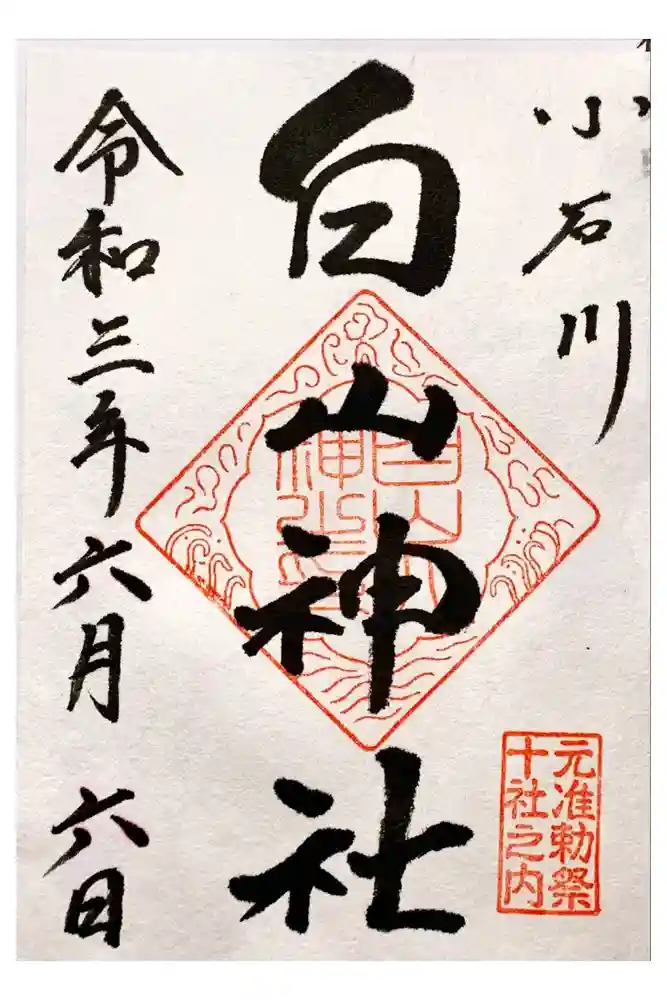 小石川
白山神社
令和三年六月六日
元准勅祭
十社之内